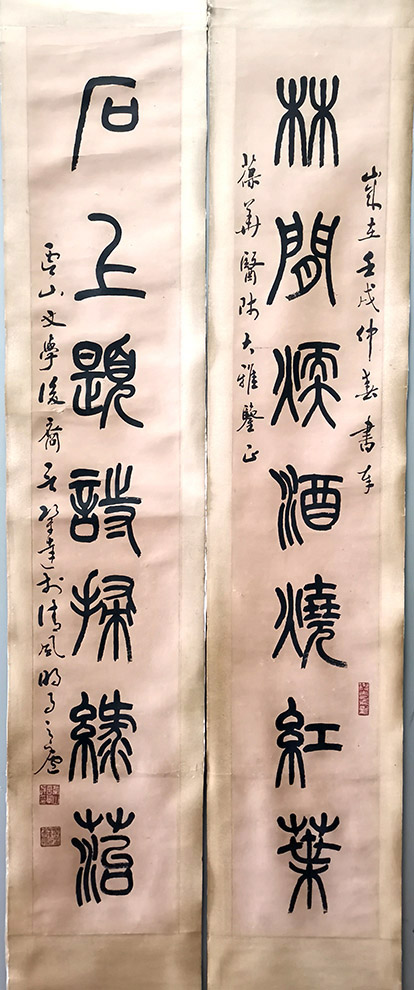 歲在壬戌仲春書奉
林間煖酒燒紅葉
葆華醫師大雅鑒正
石上題詩掃綠菭
虞山文學後裔言鞏達於清風明月之廬